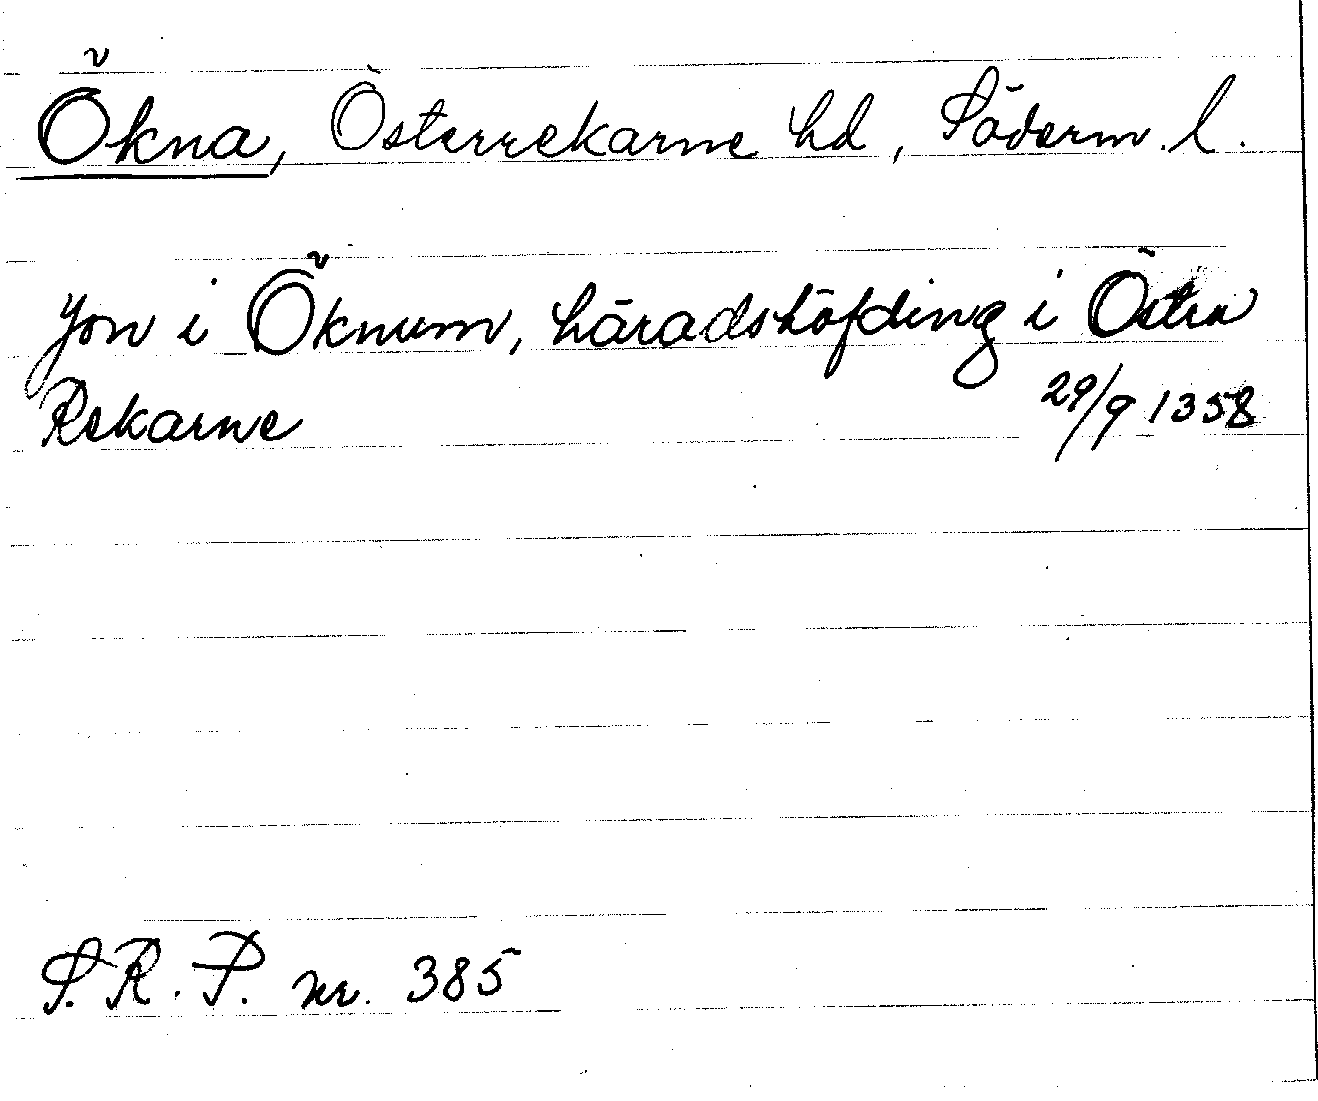 Ökna, Österrekarne hd, Söderm. l.
Jon i Öknum, häradshöfding i Östra
Rekarne 29/9 1358
S.R.P. nr. 385